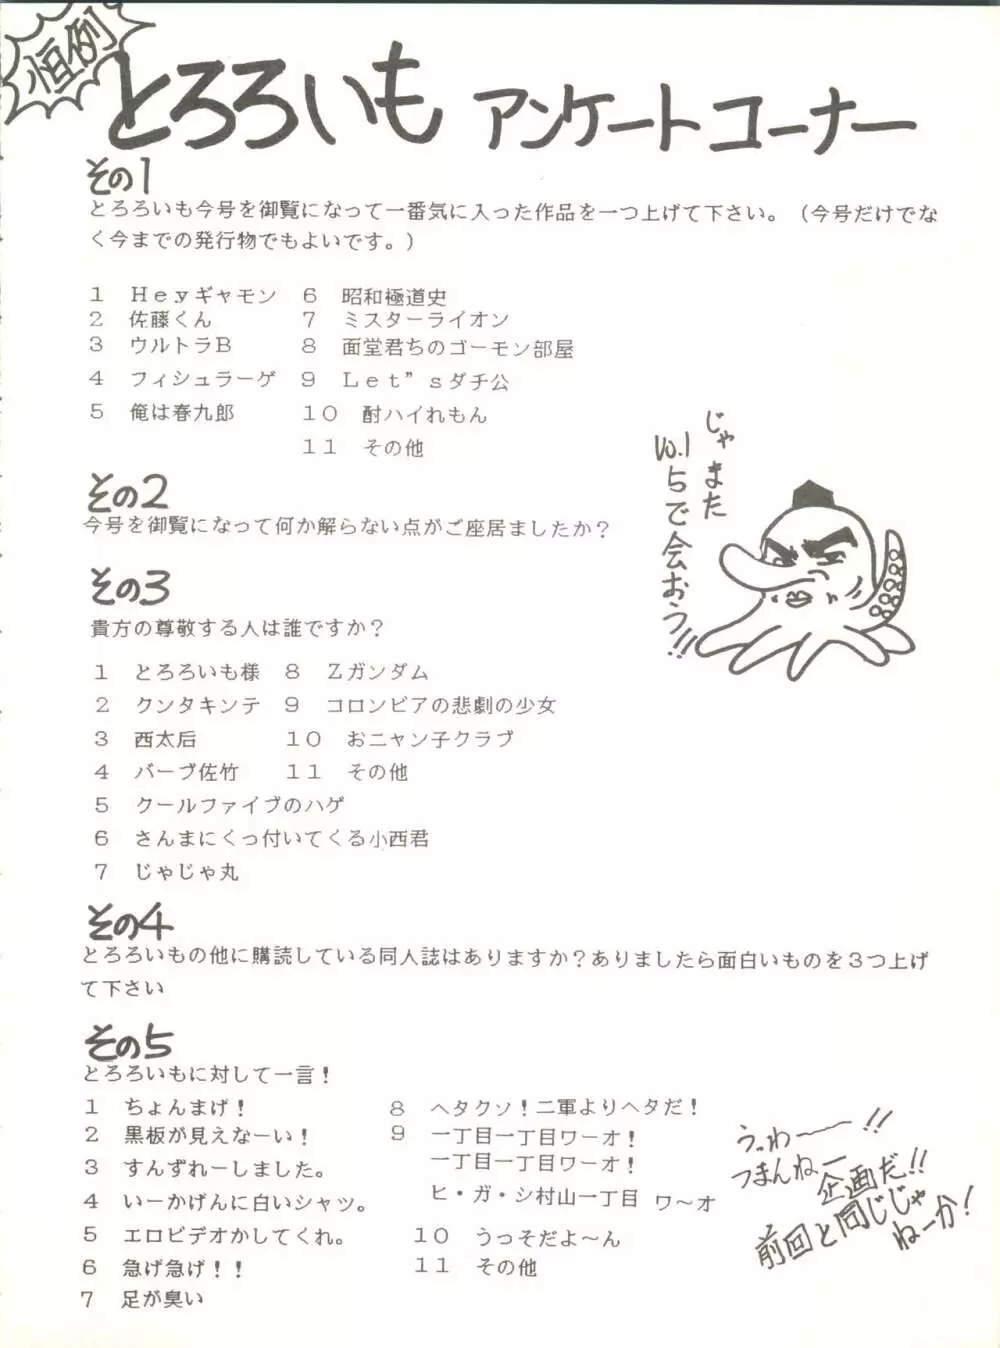 恒例
とろろいも アンケートコーナー
その1
とろろいも今号を御覧になって一番気に入った作品を一つ上げて下さい。（今号だけでな
く今までの発行物でもよいです。）
１　Ｈｅｙギャモン　６　昭和極道史
２　佐藤くん　７　ミスターライオン
３　ウルトラＢ　８　面堂君ちのゴーモン部屋
４　フィシュラーゲ　９　Ｌｅｔ”ｓダチ公
５　俺は春九郎　１０　酎ハイれもん
１１　その他
じゃまた
Vo.1
5で会おう!!
その2
今号を御覧になって何か解らない点がご座居ましたか？
その3
貴方の尊敬する人は誰ですか？
１　とろろいも様　８　Ｚガンダム
２　クンタキンテ　９　コロンビアの悲劇の少女
３　西太后　１０　おニャン子クラブ
４　バーブ佐竹　１１　その他
５　クールファイブのハゲ
６　さんまにくっ付いてくる小西君
７　じゃじゃ丸
その4
とろろいもの他に購読している同人誌はありますか？ありましたら面白いものを３つ上げ
て下さい
その5
とろろいもに対して一言！
１　ちょんまげ！　８　ヘタクソ！二軍よりヘタだ！
２　黒板が見えなーい！　９　一丁目一丁目ワーオ！
一丁目一丁目ワーオ！
３　すんずれーしました。
ヒ・ガ・シ村山一丁目　ワ〜オ
４　いーかげんに白いシャツ。
５　エロビデオかしてくれ。　１０　うっそだよ〜ん
６　急げ急げ！！　１１　その他
７　足が臭い
うっわ〜〜!!
つまんねー
企画だ!!
前回と同じじゃ
ねーか!